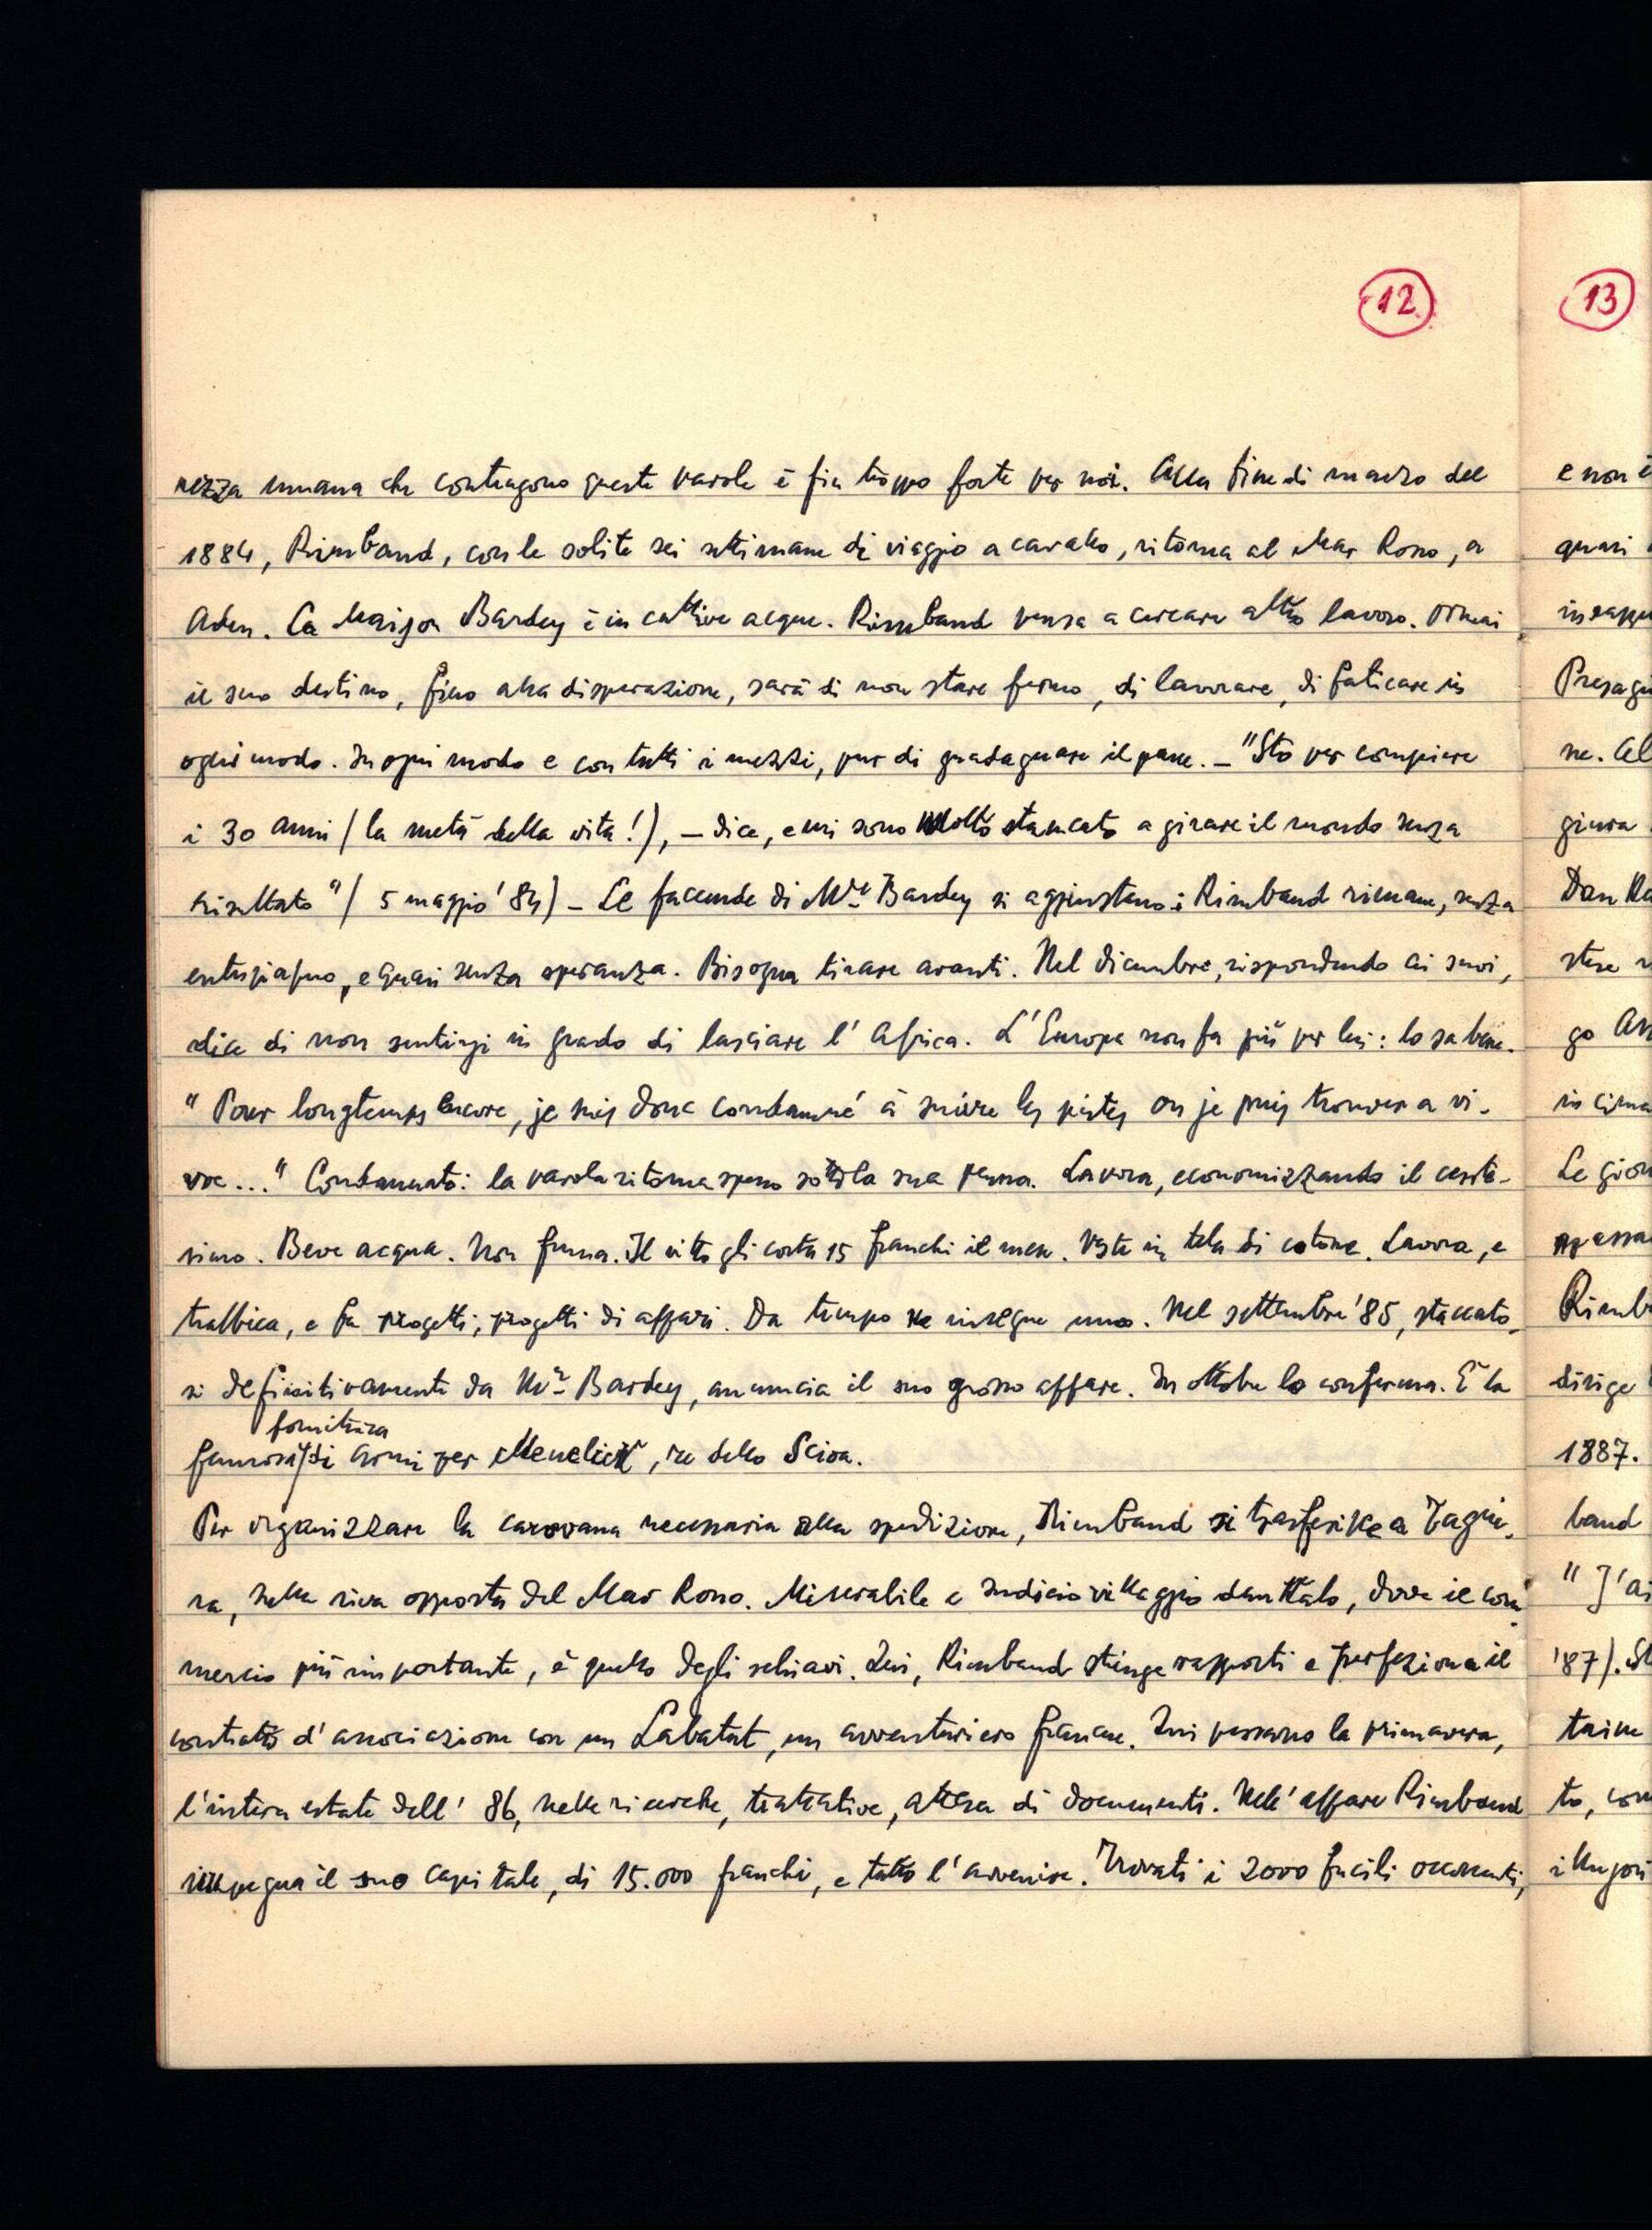 12
rezza umana che contengono queste parole è fin troppo forte per noi. Alla fine di marzo del
1884, Rimbaud, con le solite sei settimane di viaggio a cavallo, ritorna al Mar Rosso, a
Aden. La Maison Bardey è in cattive acque. Rimbaud pensa a cercare altro lavoro. Ormai
il suo destino, fino alla disperazione, sarà di non stare fermo, di lavorare, di faticare in
ogni modo. In ogni modo e con tutti i mezzi, pur di guadagnare il pane. – "Sto per compiere
i 30 anni (la metà della vita!), – dice, e mi sono molto stancato a girare il mondo senza
risultato" (5 maggio '84) – Le faccende di Mr Bardey si aggiustano: Rimbaud rimane, senza
entusiasmo, e quasi senza speranza. Bisogna tirare avanti. Nel dicembre, rispondendo ai suoi,
dice di non sentirsi in grado di lasciare l'Africa. L'Europa non fa più per lui: lo sa bene.
"Pour longtemps encore, je suis donc condamné à suivre les pistes ou je puis trouver a vi-
vre..." Condannato: la parola ritorna spesso sotto la sua penna. Lavora, economizzando il cente-
simo. Beve acqua. Non fuma. Il vitto gli costa 15 franchi il mese. Veste in tela di cotone. Lavora, e
traffica, e fa progetti, progetti di affari. Da tempo ne insegue uno. Nel settembre '85, staccato-
si definitivamente da Mr Bardey, annuncia il suo grosso affare. In ottobre lo conferma. È la
fornitura
famosa di armi per Menelick, re dello Scioa.
Per organizzare la carovana necessaria alla spedizione, Rimbaud si trasferisce a Tagiu-
ra, nella riva opposta del Mar Rosso. Miserabile e sudicio villaggio danakalo, dove il com-
mercio più importante, è quello degli schiavi. Qui, Rimbaud stringe rapporti e perfeziona il
contratto d'associazione con un Labatut, un avventuriero francese. Qui passano la primavera,
l'intera estate dell' 86, nelle ricerche, trattative, attesa di documenti. Nell'affare Rimbaud
impegna il suo capitale, di 15.000 franchi, e tutto l'avvenire. Trovati i 2000 fucili occorrenti,
13
e non è
quasi
Presagi
giura
Rimb
dirige
1887.
baud
"J'ai
'87).
to, con